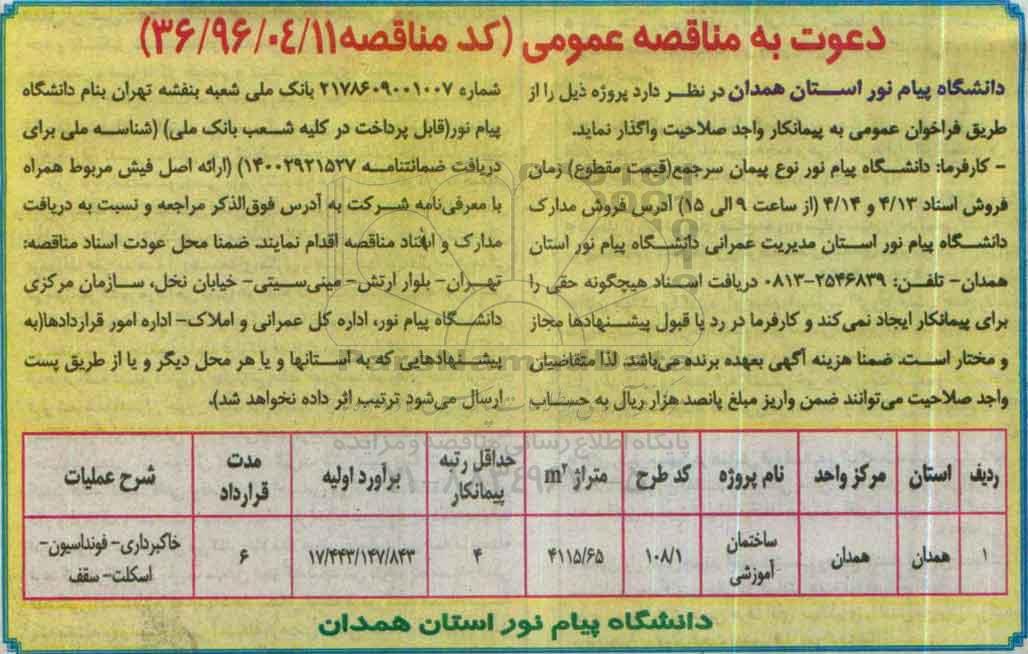 دعوت به مناقصه عمومی (کد مناقصه ۳۶/۹۶/۰۴/۱۱)
دانشگاه پیام نور استان همدان در نظر دارد پروژه ذیل را از
طریق فراخوان عمومی به پیمانکار واجد صلاحیت واگذار نماید.
- کارفرما: دانشگاه پیام نور نوع پیمان سرجمع(قیمت مقطوع) زمان
فروش اسناد ۴/۱۳ و ۴/۱۴ (از ساعت ۹ الی ۱۵) آدرس فروش مدارک
دانشگاه پیام نور استان مدیریت عمرانی دانشگاه پیام نور استان
همدان- تلفن: ۲۵۴۶۸۳۹-۰۸۱۳ دریافت اسناد هیچگونه حقی را
برای پیمانکار ایجاد نمی‌کند و کارفرما در رد یا قبول پیشنهادها مجاز
و مختار است. ضمنا هزینه آگهی بعهده برنده می‌باشد. لذا متقاضیان
واجد صلاحیت می‌توانند ضمن واریز مبلغ پانصد هزار ریال به حساب
شماره ۲۱۷۸۶۰۹۰۰۱۰۰۷ بانک ملی شعبه بنفشه تهران بنام دانشگاه
پیام نور(قابل پرداخت در کلیه شعب بانک ملی) (شناسه ملی برای
دریافت ضمانتنامه ۱۴۰۰۲۹۲۱۵۲۷) (ارائه اصل فیش مربوط همراه
با معرفی‌نامه شرکت به آدرس فوق‌الذکر مراجعه و نسبت به دریافت
مدارک و اسناد مناقصه اقدام نمایند. ضمنا محل عودت اسناد مناقصه:
تهران- بلوار ارتش- مینی‌سیتی- خیابان نخل، سازمان مرکزی
دانشگاه پیام نور، اداره کل عمرانی و املاک- اداره امور قراردادها(به
پیشنهادهایی که به استانها و یا هر محل دیگر و یا از طریق پست
ارسال می‌شود ترتیب اثر داده نخواهد شد).
ردیف استان مرکز واحد نام پروژه کد طرح متراژ m² حداقل رتبه پیمانکار برآورد اولیه مدت قرارداد شرح عملیات
۱ همدان همدان ساختمان آموزشی ۱۰۸/۱ ۴۱۱۵/۶۵ ۴ ۱۷/۴۴۳/۱۴۷/۸۴۳ ۶ خاکبرداری- فونداسیون- اسکلت- سقف
دانشگاه پیام نور استان همدان
پایگاه اطلاع رسانی مناقصه و مزایده